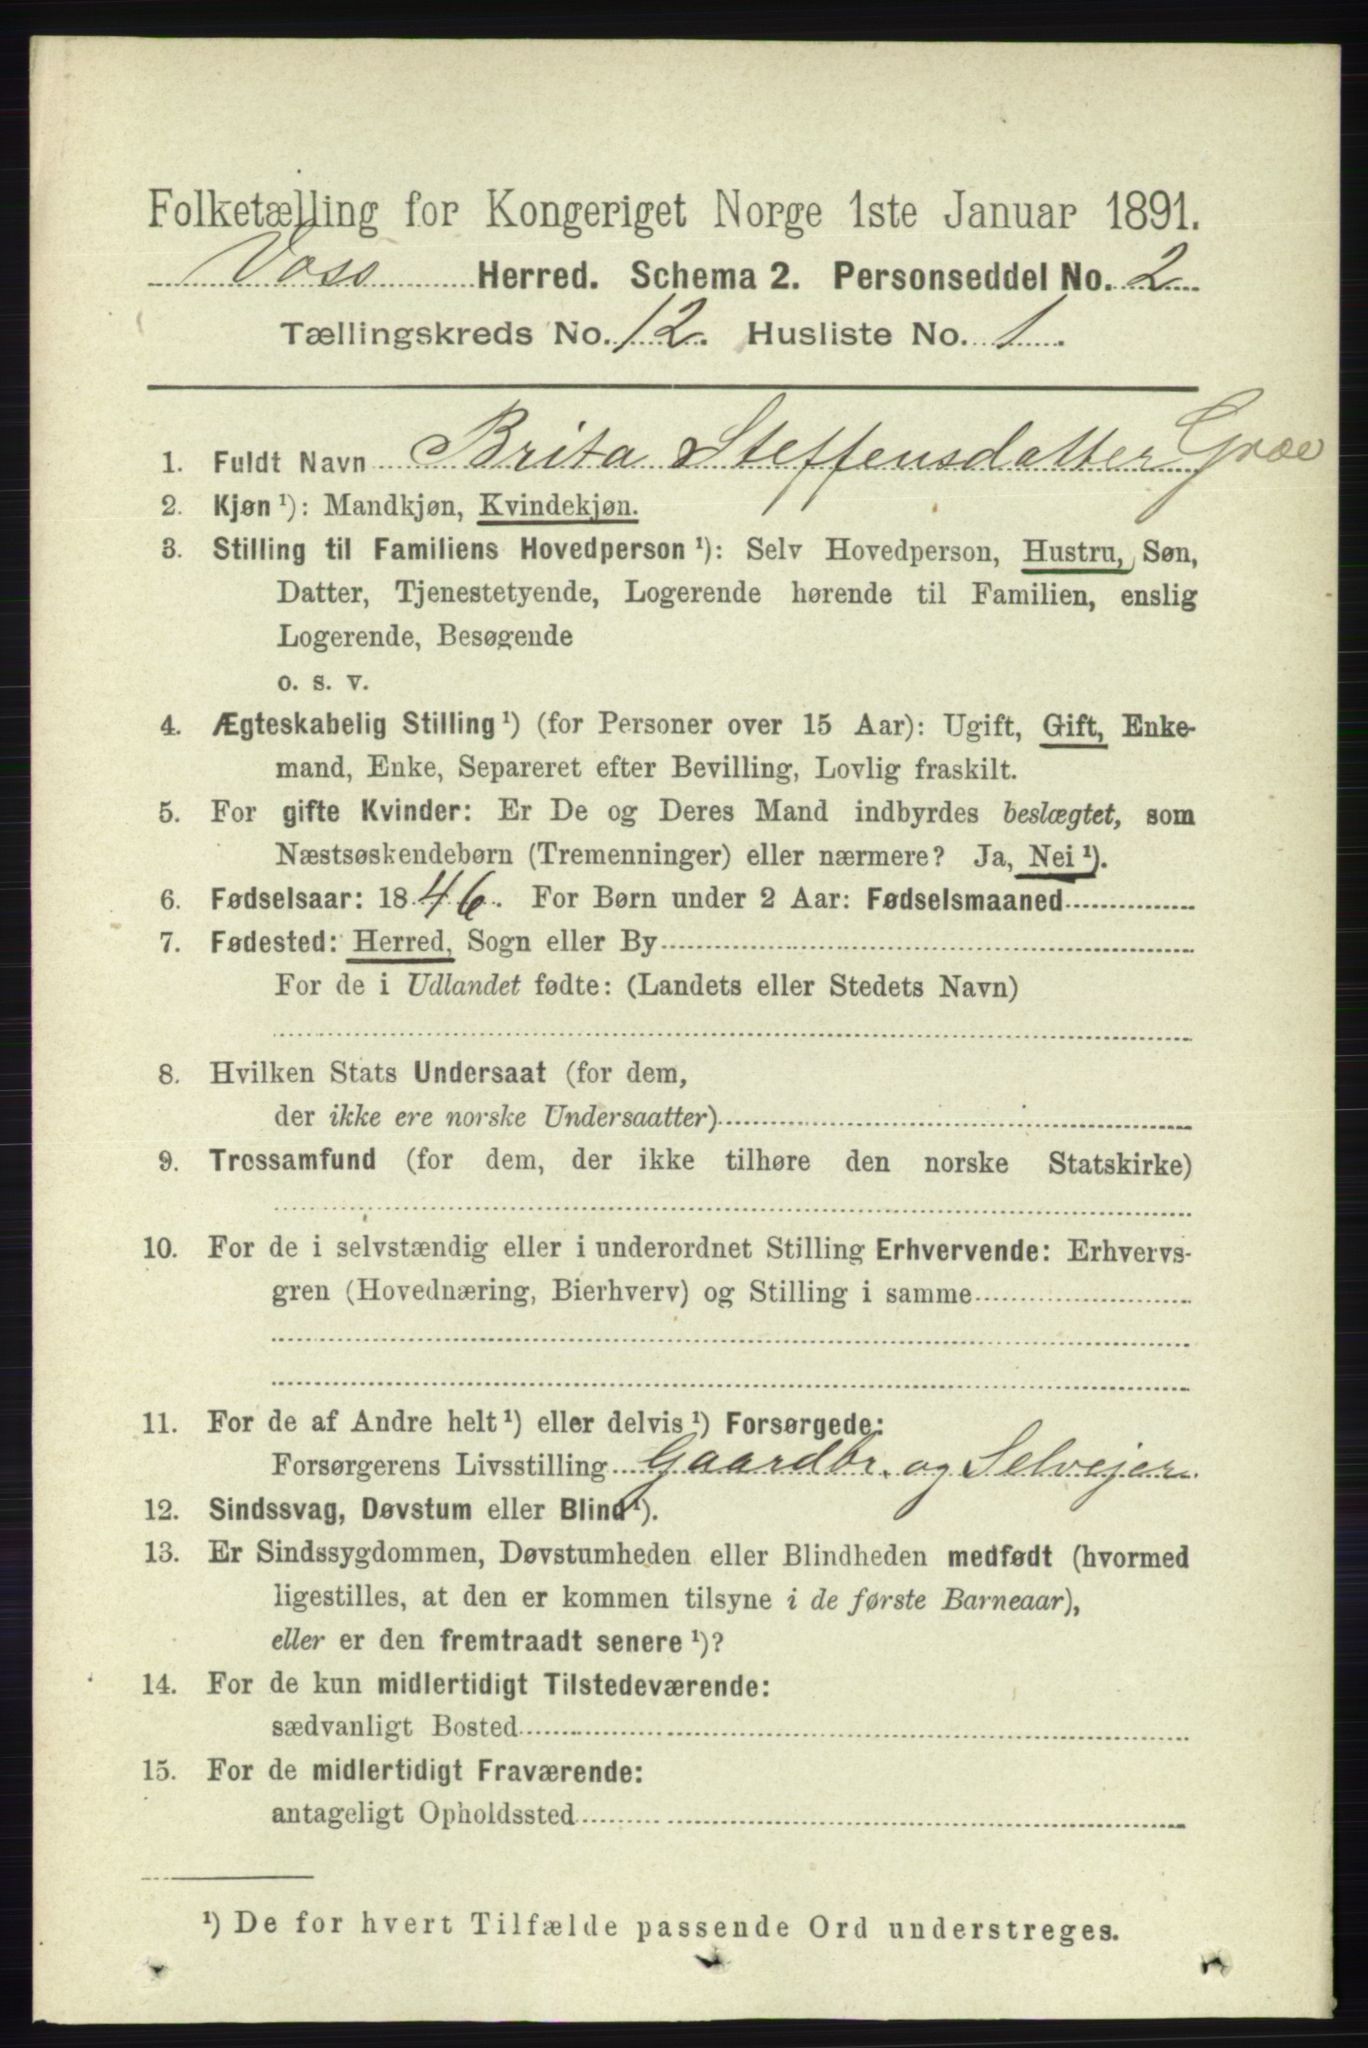 Folketælling for Kongeriget Norge 1ste Januar 1891.
Voss Herred. Schema 2. Personseddel No. 2
Tællingskreds No. 12. Husliste No. 1.
1. Fuldt Navn Brita Steffensdatter Græe
2. Kjøn ¹): Mandkjøn, Kvindekjøn.
3. Stilling til Familiens Hovedperson ¹): Selv Hovedperson, Hustru, Søn,
Datter, Tjenestetyende, Logerende hørende til Familien, enslig
Logerende, Besøgende
o. s. v.
4. Ægteskabelig Stilling ¹) (for Personer over 15 Aar): Ugift, Gift, Enke-
mand, Enke, Separeret efter Bevilling, Lovlig fraskilt.
5. For gifte Kvinder: Er De og Deres Mand indbyrdes beslægtet, som
Næstsøskendebørn (Tremenninger) eller nærmere? Ja, Nei ¹).
6. Fødselsaar: 1846. For Børn under 2 Aar: Fødselsmaaned
7. Fødested: Herred, Sogn eller By
For de i Udlandet fødte: (Landets eller Stedets Navn)
8. Hvilken Stats Undersaat (for dem,
der ikke ere norske Undersaatter)
9. Trossamfund (for dem, der ikke tilhøre den norske Statskirke)
10. For de i selvstændig eller i underordnet Stilling Erhvervende: Erhvervs-
gren (Hovednæring, Bierhverv) og Stilling i samme
11. For de af Andre helt ¹) eller delvis ¹) Forsørgede:
Forsørgerens Livsstilling Gaardbr. og Selvejer
12. Sindssvag, Døvstum eller Blind ¹).
13. Er Sindssygdommen, Døvstumheden eller Blindheden medfødt (hvormed
ligestilles, at den er kommen tilsyne i de første Barneaar),
eller er den fremtraadt senere ¹)?
14. For de kun midlertidigt Tilstedeværende:
sædvanligt Bosted
15. For de midlertidigt Fraværende:
antageligt Opholdssted
¹) De for hvert Tilfælde passende Ord understreges.